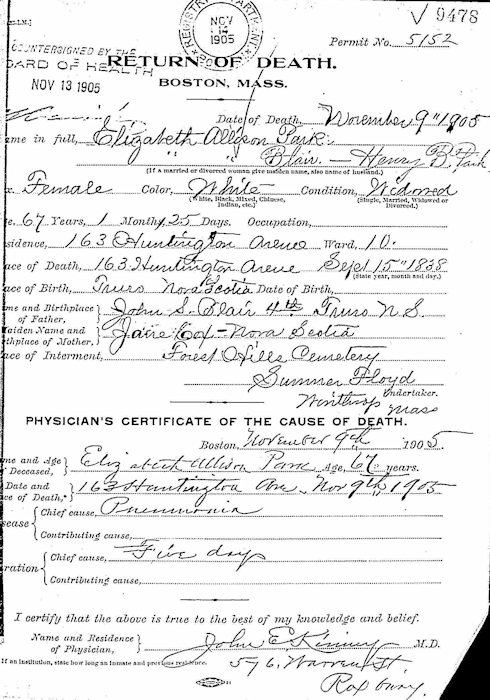 ✓ 9478
REGISTRY DEPARTMENT
NOV
14
1905
Permit No. 5152
COUNTERSIGNED BY THE
OARD OF HEALTH
NOV 13 1905
RETURN OF DEATH.
BOSTON, MASS.
Date of Death, November 9" 1905
ame in full, Elizabeth Allison Park.
" " Blair. — Henry B. Park
(If a married or divorced woman give maiden name, also name of husband.)
x, Female Color, White Condition, Widowed
(White, Black, Mixed, Chinese, Indian, etc.) (Single, Married, Widowed or Divorced.)
e, 67 Years, 1 Months, 25 Days. Occupation,
sidence, 163 Huntington Avenue Ward, 10.
ace of Death, 163 Huntington Avenue Sept 15" 1838
(State year, month and day.)
ace of Birth, Truro Nova Scotia Date of Birth,
me and Birthplace of Father, John S. Blair 4th Truro N.S.
aiden Name and thplace of Mother, Jane Cox - Nova Scotia
ace of Interment, Forest Hills Cemetery
Sumner Floyd
Undertaker.
Winthrop Mass
PHYSICIAN'S CERTIFICATE OF THE CAUSE OF DEATH.
Boston, November 9th 1905.
me and Age Deceased, Elizabeth Allison Park Age, 67 years.
Date and ce of Death,* 163 Huntington Ave. Nov 9th, 1905
sease Chief cause, Pneumonia
Contributing cause,
ration Chief cause, Five days
Contributing cause,
I certify that the above is true to the best of my knowledge and belief.
Name and Residence of Physician, John E. Kinney M.D.
If an institution, state how long an inmate and previous residence. 576 Warren St
Roxbury